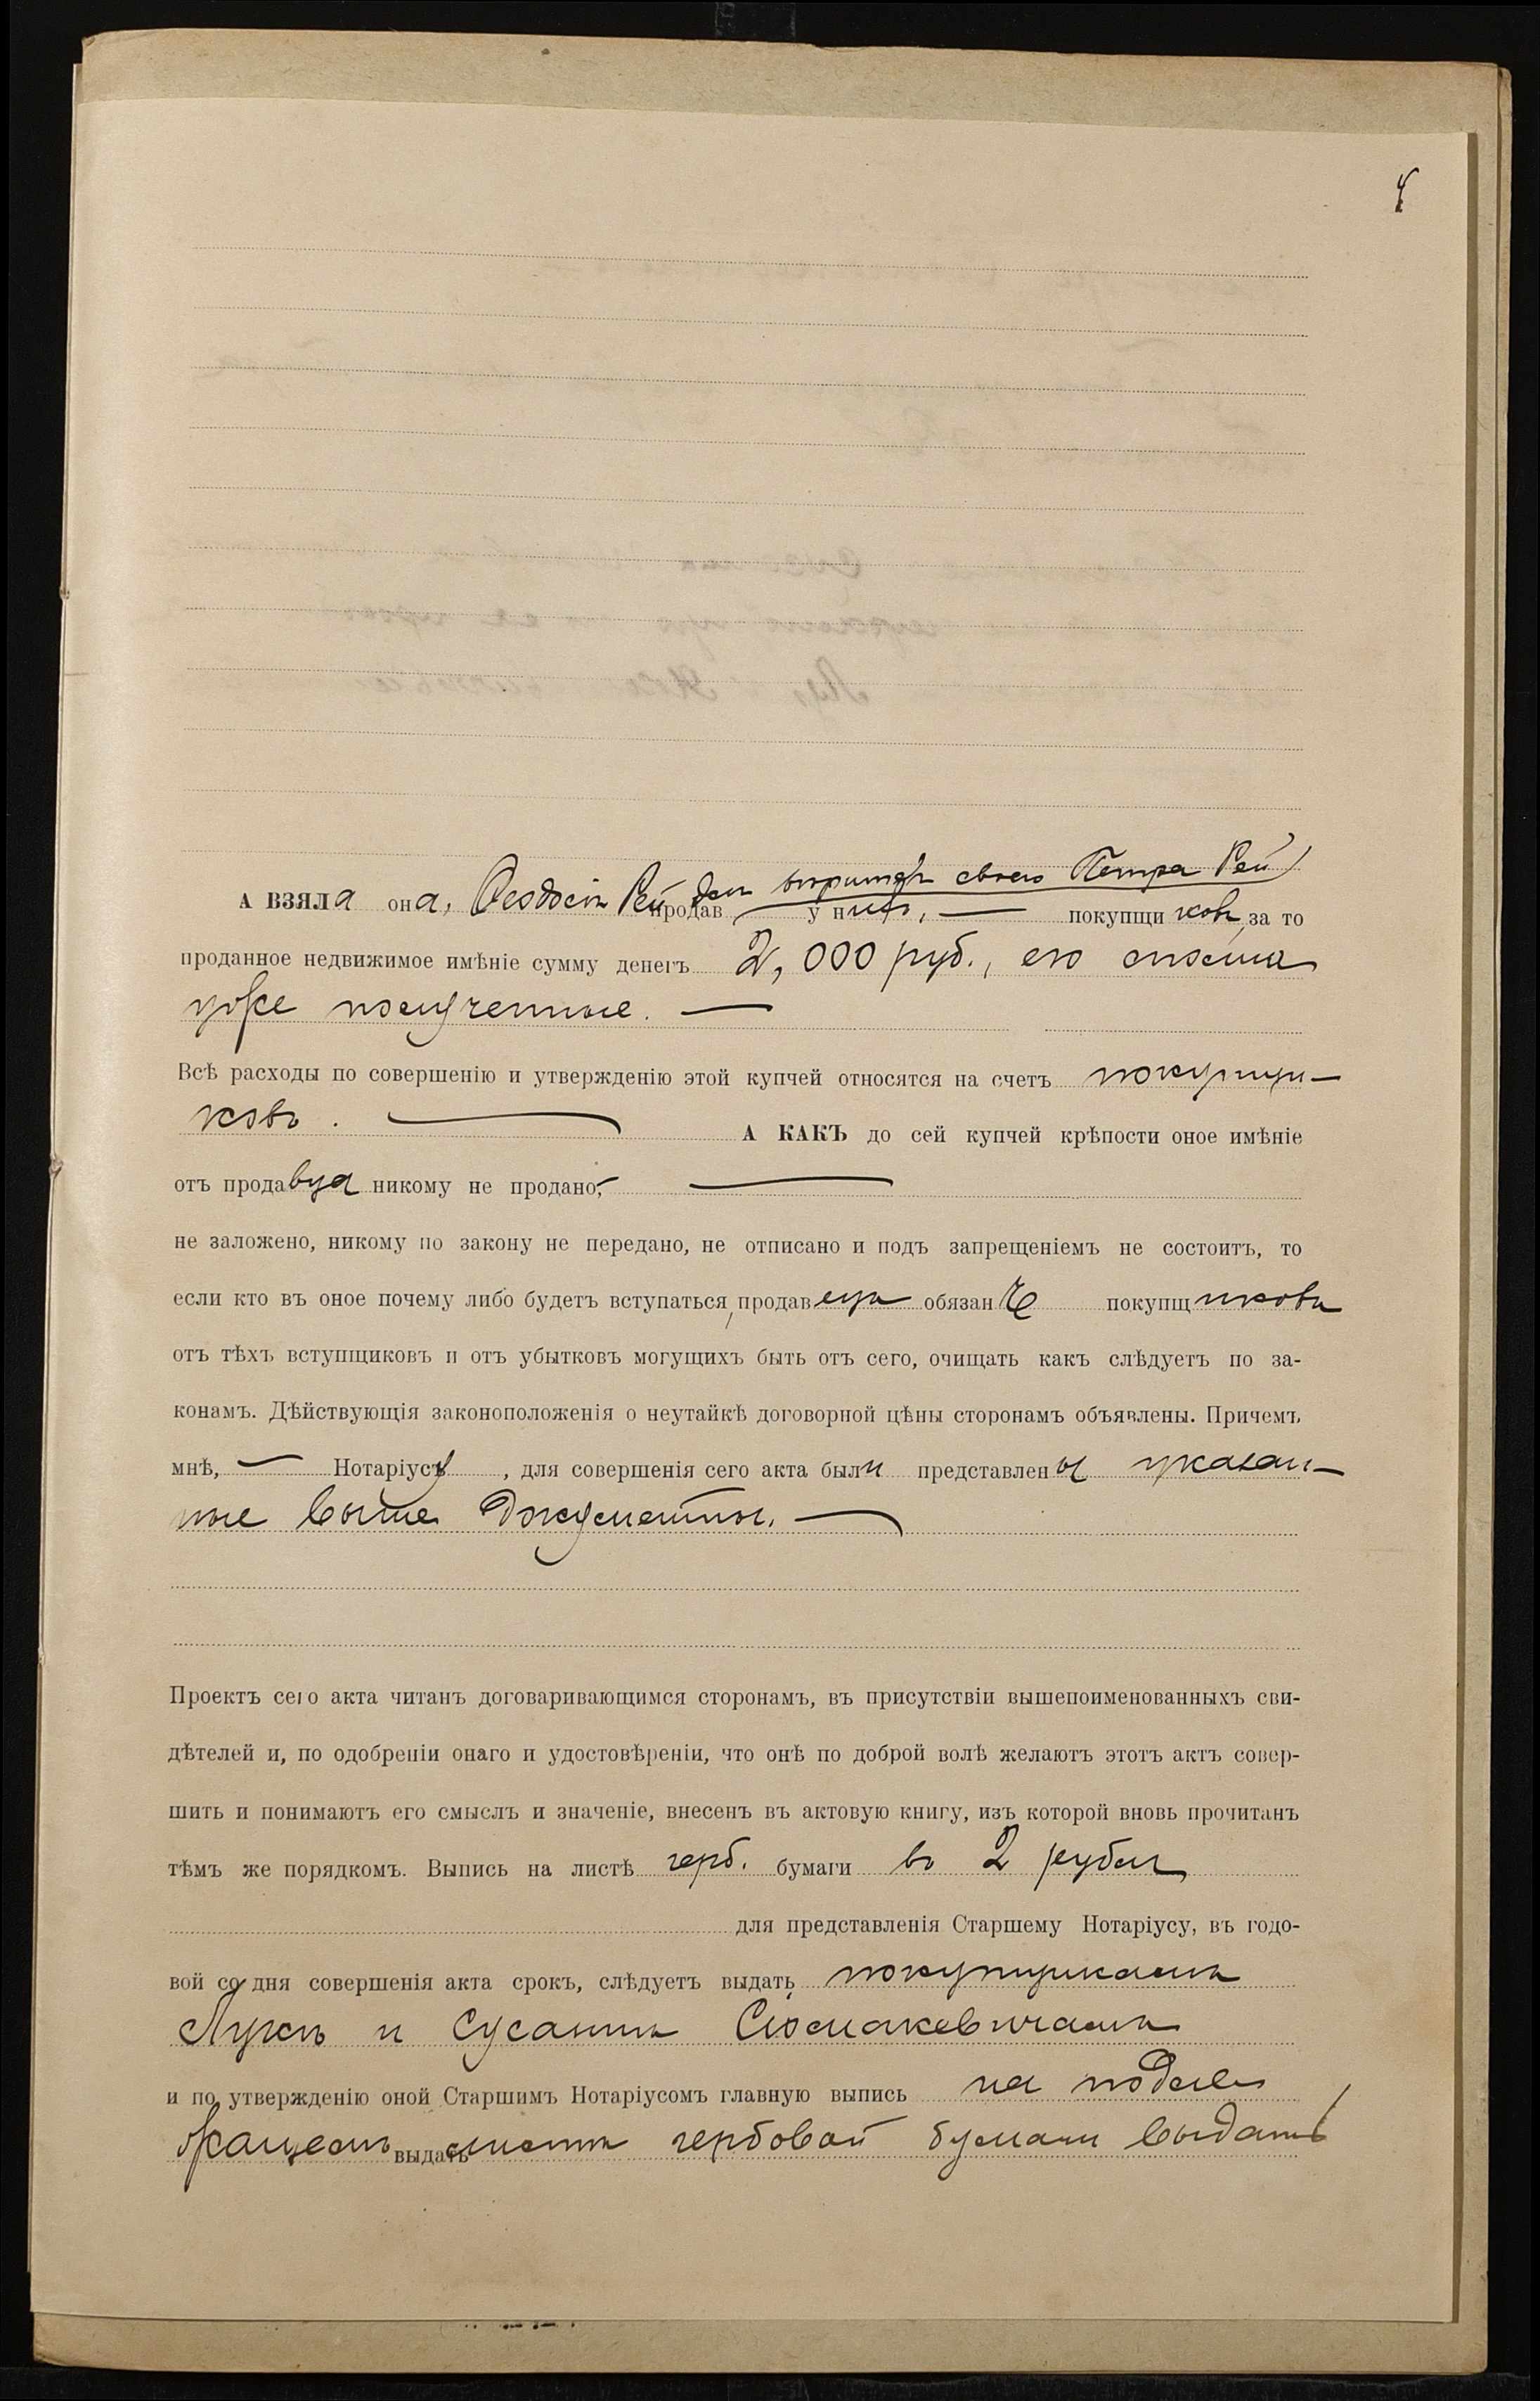 4
А ВЗЯЛа она, Феодосія Рей для вѣрителя своего Петра Рей
продав у нихъ, — покупщиковъ, за то
проданное недвижимое имѣніе сумму денегъ 2,000 руб., ею сполна
уже полученные. —
Всѣ расходы по совершенію и утвержденію этой купчей относятся на счетъ покупщи—
ковъ. — А КАКЪ до сей купчей крѣпости оное имѣніе
отъ продавца никому не продано, —
не заложено, никому по закону не передано, не отписано и подъ запрещеніемъ не состоитъ, то
если кто въ оное почему либо будетъ вступаться, продавецъ обязанъ покупщиковъ
отъ тѣхъ вступщиковъ и отъ убытковъ могущихъ быть отъ сего, очищать какъ слѣдуетъ по за-
конамъ. Дѣйствующія законоположенія о неутайкѣ договорной цѣны сторонамъ объявлены. Причемъ
мнѣ, — Нотаріусу, для совершенія сего акта были представлены указан—
ные выше документы. —
Проектъ сего акта читанъ договаривающимся сторонамъ, въ присутствіи вышепоименованныхъ сви-
дѣтелей и, по одобреніи онаго и удостовѣреніи, что онѣ по доброй волѣ желаютъ этотъ актъ совер-
шить и понимаютъ его смыслъ и значеніе, внесенъ въ актовую книгу, изъ которой вновь прочитанъ
тѣмъ же порядкомъ. Выпись на листѣ герб. бумаги въ 2 рубля
для представленія Старшему Нотаріусу, въ годо-
вой со дня совершенія акта срокъ, слѣдуетъ выдать покупщикамъ
Лукѣ и Сусаннѣ Сюмакевичамъ
и по утвержденію оной Старшимъ Нотаріусомъ главную выпись на подле
жащемъ выдать листѣ гербовой бумаги выдать